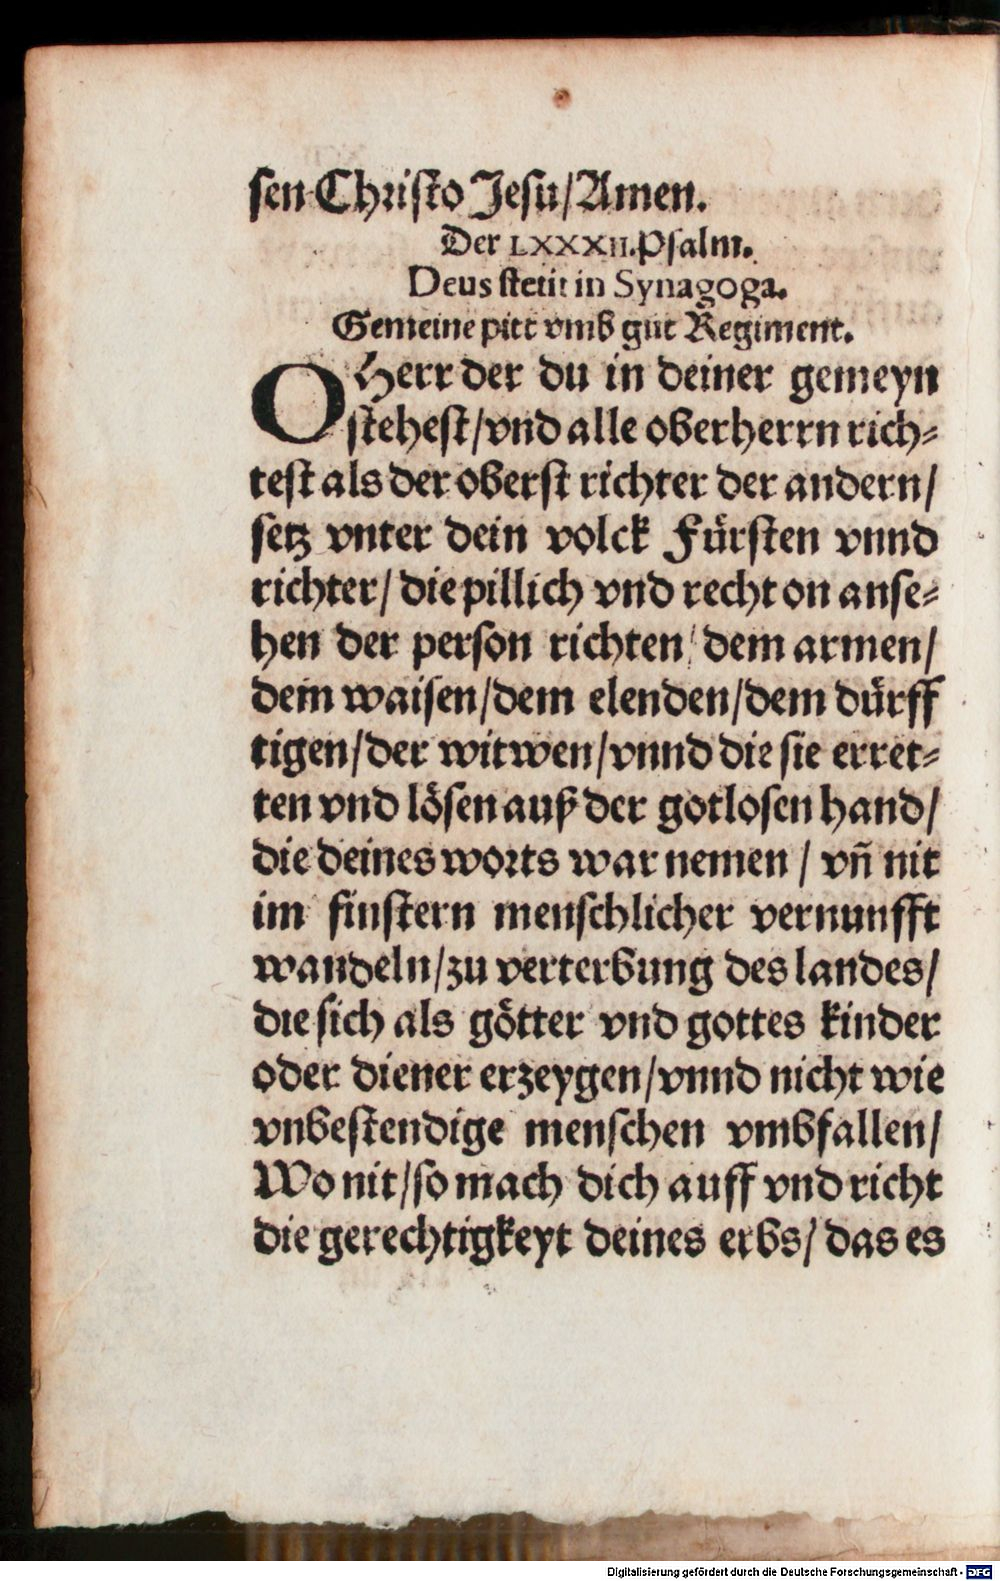 sen Christo Jesu/Amen.
Der LXXXII. Psalm.
Deus stetit in Synagoga.
Gemeine pitt vmb gut Regiment.
O Herr der du in deiner gemeyn
stehest/vnd alle oberherrn rich-
test als der oberst richter der andern/
setz vnter dein volck Fürsten vnnd
richter/ die pillich vnd recht on anse-
hen der person richten/ dem armen/
dem waisen/dem elenden/dem dürff
tigen/der witwen/vnnd die sie erret-
ten vnd lösen auß der gotlosen hand/
die deines worts war nemen / vñ nit
im finstern menschlicher vernunfft
wandeln/zu verterbung des landes/
die sich als götter vnd gottes kinder
oder diener erzeygen/vnnd nicht wie
vnbestendige menschen vmbfallen/
Wo nit/so mach dich auff vnd richt
die gerechtigkeyt deines erbs/ das es
Digitalisierung gefördert durch die Deutsche Forschungsgemeinschaft - DFG